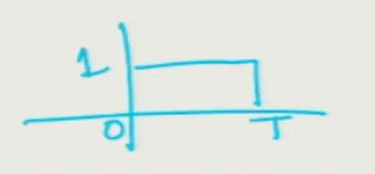 1
0 T